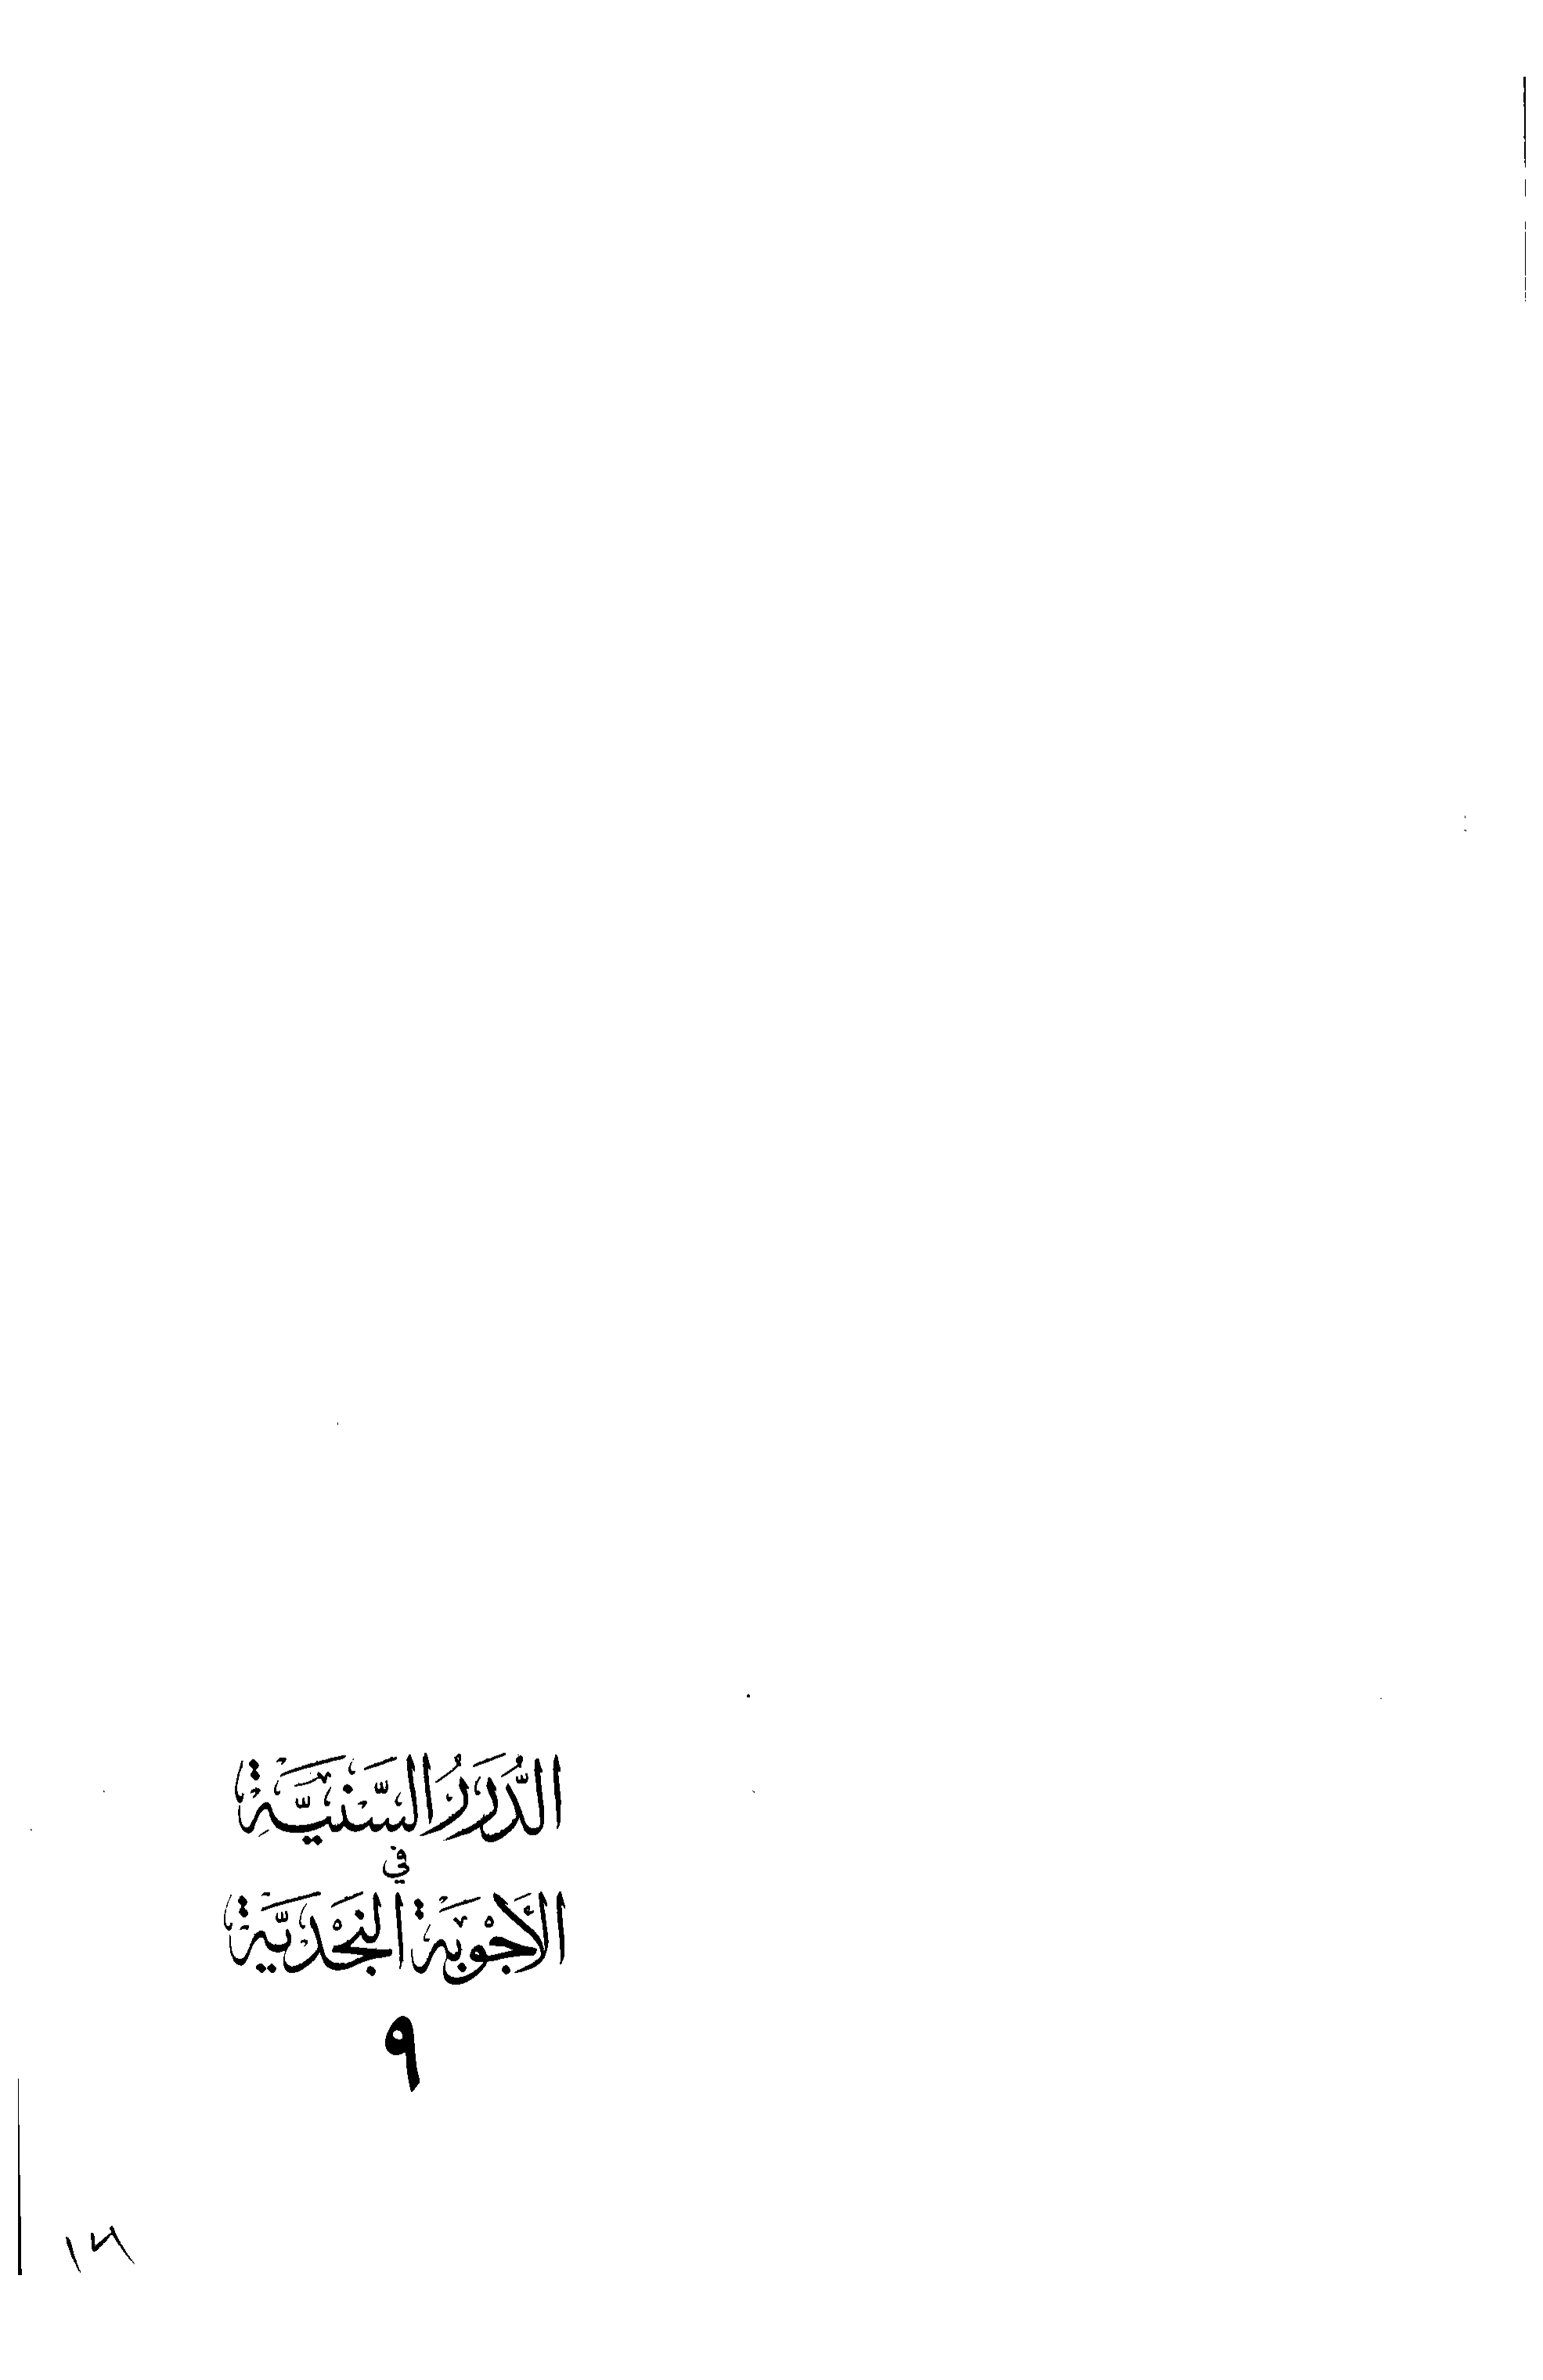 الدُّرَرُ السَّنِيَّةِ
في
الأَجْوِبَةِ النَّجْدِيَّةِ
٩